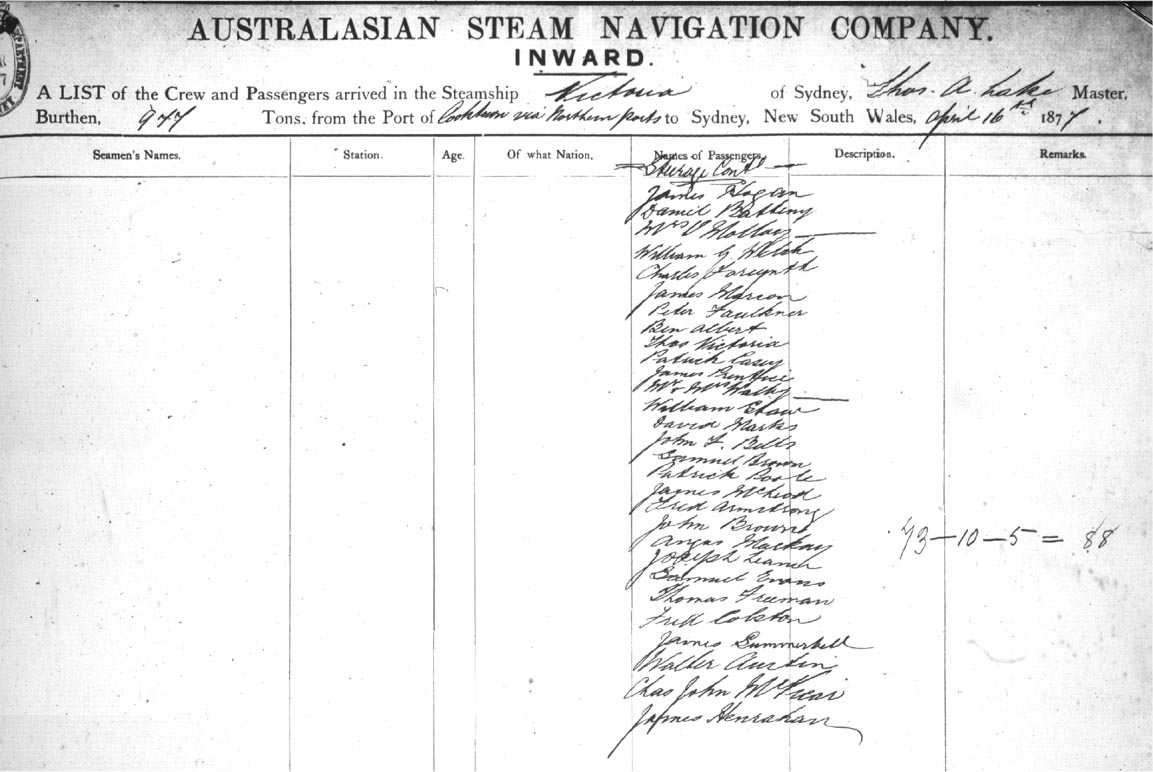 AUSTRALASIAN STEAM NAVIGATION COMPANY.
INWARD.
A LIST of the Crew and Passengers arrived in the Steamship Victoria of Sydney, Thos. A. Lake Master,
Burthen, 977 Tons, from the Port of Cooktown via Northern ports to Sydney, New South Wales, April 16th 1877.
Seamen's Names. Station. Age. Of what Nation. Names of Passengers. Description. Remarks.
Steerage Contd
James Hogan
Daniel
Mrs
William G Welsh
Charles Forsynth
James Marion
Peter Faulkner
Ben Albert
Thos Victoria
Patrick Casey
James Prentice
Mr & Mrs
William Shaw
David Marks
John F. Betts
Samuel Brown
Patrick Poole
James McLeod
Fred Armstrong
John Browne
Angus Mackay
73-10-5 = 88
Joseph
Samuel Evans
Thomas Freeman
Fred Colston
James Summerbell
Walter Austin
Chas John McVicar
James Henrahan